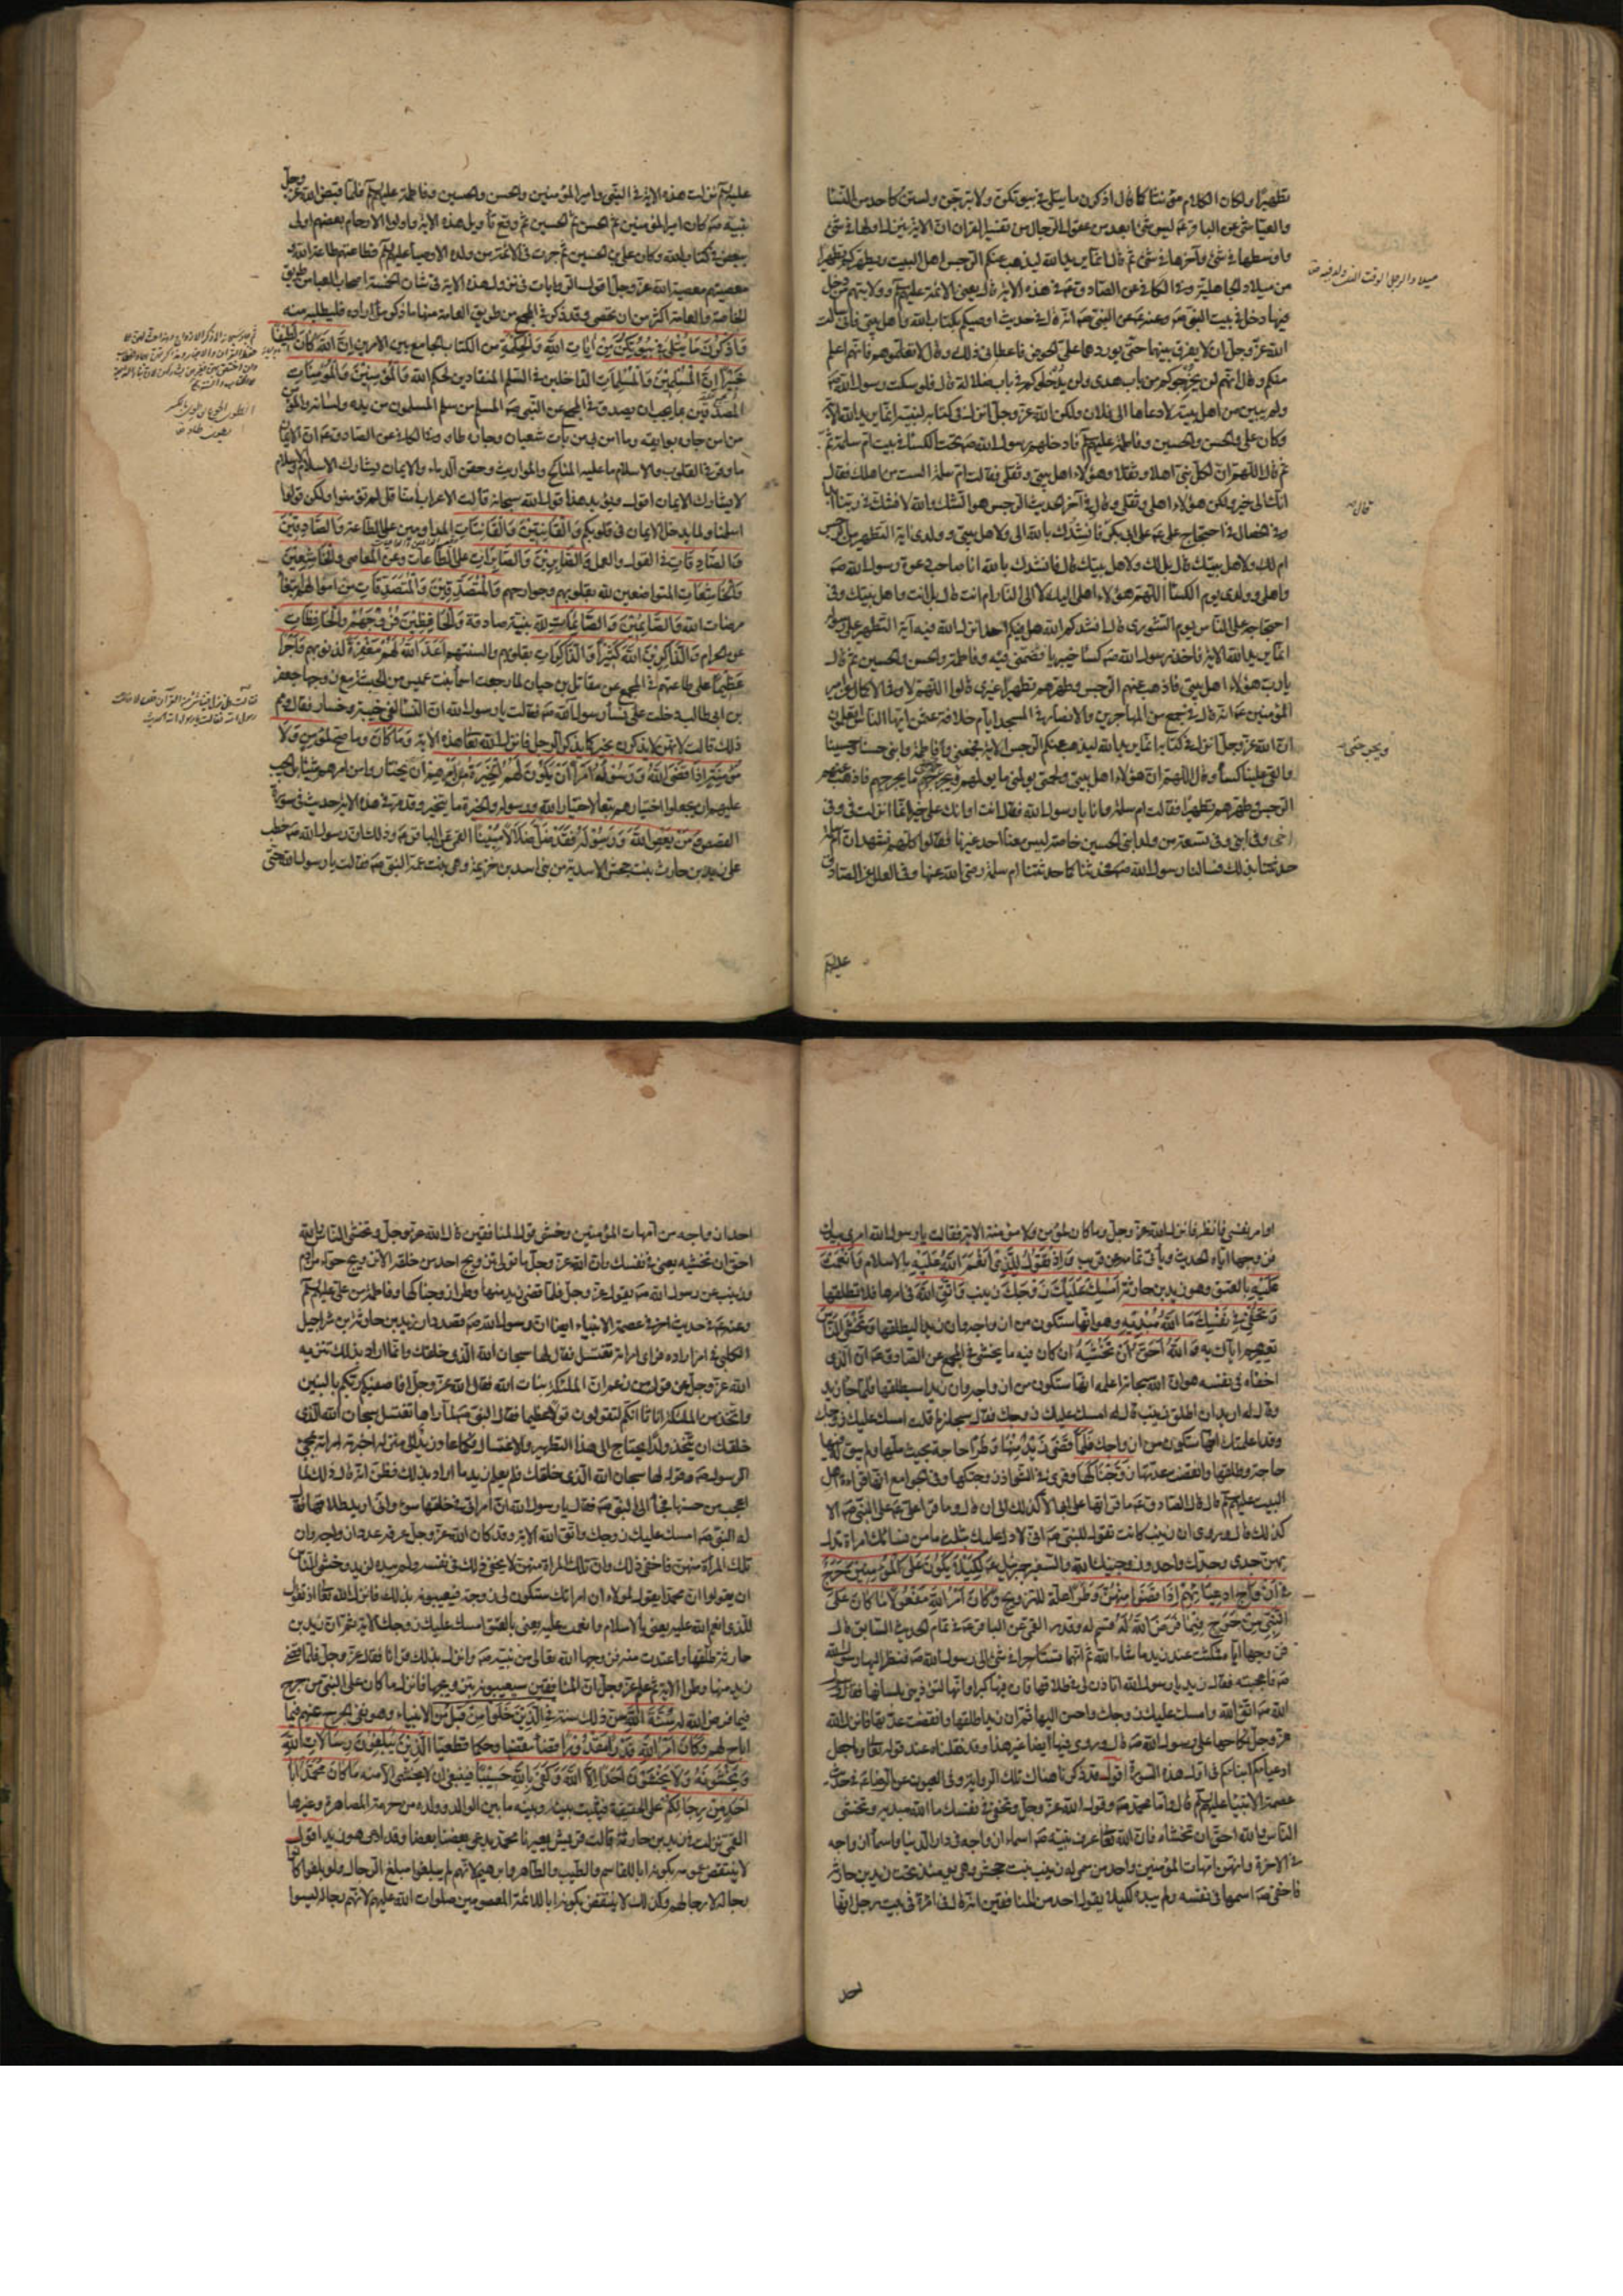 تطهيرا ولو كان الكلام مؤنثا كما قال اذكرن ما يتلى فى بيوتكن ولا تبرجن ولستن كاحد من النساء
والعياشى عن الباقر ع ليس شئ ابعد من عقول الرجال من تفسير القران ان الاية ينزل اولها فى شئ
واوسطها فى شئ وآخرها فى شئ ثم قال انما يريد الله ليذهب عنكم الرجس اهل البيت ويطهركم تطهيرا
من ميلاد الجاهلية وفى الكافى عن الصادق ع فى هذه الاية قال يعنى الائمة عليهم وولايتهم من دخل
فيها دخل فى بيت النبى ص وعنه ع عن النبى ص انه قال فى حديث اوصيكم بكتاب الله واهل بيتى فانى سالت
الله عز وجل ان لا يفرق بينهما حتى يوردهما على الحوض فاعطانى ذلك وقال لا تعلموهم فانهم اعلم
منكم وقال انهم لن يخرجوكم من باب هدى ولن يدخلوكم فى باب ضلالة قال فلو سكت رسول الله ص
ولم يبين من اهل بيته لادعاها ال فلان وال فلان ولكن الله عز وجل انزل فى كتابه لنبيه انما يريد الله الاية
وكان على والحسن والحسين وفاطمة عليهم فادخلهم رسول الله ص تحت الكساء فى بيت ام سلمة ثم
ثم قال اللهم ان لكل نبى اهلا وثقلا وهؤلاء اهل بيتى وثقلى فقالت ام سلمة الست من اهلك فقال
انك الى خير ولكن هؤلاء اهلى وثقلى وقال فى آخر الحديث الرجس هو الشك والله لا نشك فى ربنا ابدا
وفى الخصال فى احتجاج على ع على ابى بكر قال فانشدك بالله الى ولاهل بيتى وولدى آية التطهير من الرجس
ام لك ولاهل بيتك قال بل لك ولاهل بيتك قال فانشدك بالله انا صاحب دعوة رسول الله ص
واهلى وولدى يوم الكساء اللهم هؤلاء اهلى اليك لا الى النار ام انت قال بل انت واهل بيتك وفى
احتجاجه على الناس يوم الشورى قال انشدكم الله هل فيكم احد انزل الله فيه آية التطهير على رسوله
انما يريد الله الاية فاخذ رسول الله ص كساء خيبريا فضمنى فيه وفاطمة والحسن والحسين ثم قال
يا رب هؤلاء اهل بيتى فاذهب عنهم الرجس وطهرهم تطهيرا غيرى قالوا اللهم لا وفى الاكمال عن امير
المؤمنين ع انه قال فى جمع من المهاجرين والانصار فى المسجد ايام خلافة عثمن ايها الناس اتعلمون
ان الله عز وجل انزل فى كتابه انما يريد الله ليذهب عنكم الرجس الاية فجمعنى وفاطمة وابنى حسنا وحسينا
والقى علينا كساء وقال اللهم ان هؤلاء اهل بيتى ولحمتى يؤلمنى ما يؤلمهم ويجرحنى ما يجرحهم فاذهب عنهم
الرجس وطهرهم تطهيرا فقالت ام سلمة وانا يا رسول الله فقال انت او انك على خير انما انزلت فى وفى
اخى وفى ابنى وفى تسعة من ولد ابنى الحسين خاصة ليس معنا احد غيرنا فقالوا كلهم نشهد ان ام سلمة
حدثتنا بذلك فسالنا رسول الله ص فحدثنا كما حدثتنا ام سلمة رضى الله عنها وفى العلل عن الصادق
عليهم
ميلاد الرجل الوقت الذى ولد فيه ص
قال ص
ويجرحنى
عليهم نزلت هذه الاية فى النبى وامير المؤمنين والحسن والحسين وفاطمة عليهم فلما قبض الله عز وجل
نبيه ص كان امير المؤمنين ثم الحسن ثم الحسين ثم وقع تأويل هذه الاية واولوا الارحام بعضهم اولى
ببعض فى كتاب الله وكان على بن الحسين ثم جرت فى الائمة من ولده الاوصياء عليهم فطاعتهم طاعة الله و
معصيتهم معصية الله عز وجل اقول والروايات فى نزول هذه الاية فى شان الخمسة اصحاب العباء من طريق
الخاصة والعامة اكثر من ان تحصى وقد ذكر فى المجمع من طريق العامة منها ما ذكر من اراده فليطلبه منه
وَاذْكُرْنَ مَا يُتْلَى فِي بُيُوتِكُنَّ مِنْ آيَاتِ اللهِ وَالْحِكْمَةِ من الكتاب الجامع بين الامرين اِنَّ اللهَ كَانَ لَطِيفًا
خَبِيرًا اِنَّ الْمُسْلِمِينَ وَالْمُسْلِمَاتِ الداخلين فى السلم المنقادين لحكم الله وَالْمُؤْمِنِينَ وَالْمُؤْمِنَاتِ
المصدقين بما يجب ان يصدق فى المجمع عن النبى ص المسلم من سلم المسلمون من يده ولسانه والمؤمن
من امن جاره بوايقه وما امن بى من بات شعبان وجاره طاو وفى الكافى عن الصادق ع ان الايمان
ما وقر فى القلوب والاسلام ما عليه المناكح والمواريث وحقن الدماء والايمان يشارك الاسلام والاسلام
لا يشارك الايمان اقول ويؤيد هذا قول الله سبحانه قالت الاعراب امنا قل لم تؤمنوا ولكن قولوا
اسلمنا ولما يدخل الايمان فى قلوبكم وَالْقَانِتِينَ وَالْقَانِتَاتِ المداومين على الطاعة وَالصَّادِقِينَ
وَالصَّادِقَاتِ فى القول والعمل وَالصَّابِرِينَ وَالصَّابِرَاتِ على الطاعات وعن المعاصى وَالْخَاشِعِينَ
وَالْخَاشِعَاتِ المتواضعين لله بقلوبهم وجوارحهم وَالْمُتَصَدِّقِينَ وَالْمُتَصَدِّقَاتِ من اموالهم ابتغاء
مرضات الله وَالصَّائِمِينَ وَالصَّائِمَاتِ لله بنية صادقة وَالْحَافِظِينَ فُرُوجَهُمْ وَالْحَافِظَاتِ
عن الحرام وَالذَّاكِرِينَ اللهَ كَثِيرًا وَالذَّاكِرَاتِ بقلوبهم والسنتهم اَعَدَّ اللهُ لَهُمْ مَغْفِرَةً لذنوبهم وَاَجْرًا
عَظِيمًا على طاعتهم فى المجمع عن مقاتل بن حيان لما رجعت اسماء بنت عميس من الحبشة مع زوجها جعفر
بن ابى طالب دخلت على نساء رسول الله ص فقالت يا رسول الله ان النساء لفى خيبة وخسار فقال ومم
ذلك قالت لانهن لا يذكرن بخير كما يذكر الرجال فانزل الله تعالى هذه الاية وَمَا كَانَ وما صح لِمُؤْمِنٍ وَلَا
مُؤْمِنَةٍ اِذَا قَضَى اللهُ وَرَسُولُهُ اَمْرًا اَنْ يَكُونَ لَهُمُ الْخِيَرَةُ مِنْ اَمْرِهِمْ ان يختاروا من امرهم شيئا بل يجب
عليهم ان يجعلوا اختيارهم تبعا لاختيار الله ورسوله والخيرة ما يتخير وقد مر فى هذه الاية حديث فى سورة
القصص وَمَنْ يَعْصِ اللهَ وَرَسُولَهُ فَقَدْ ضَلَّ ضَلَالًا مُبِينًا القمى عن الباقر ع وذلك ان رسول الله ص خطب
على زيد بن حارث بنت جحش الاسدية من بنى اسد بن خزيمة وهى بنت عمة النبى ص فقالت يا رسول الله حتى
اوامر نفسى فانظر فانزل الله عز وجل وما كان لمؤمن ولا مؤمنة الاية فقالت يا رسول الله امرى بيدك
فزوجها اياه الحديث ويأتى تمامه عن قريب وَاِذْ تَقُولُ لِلَّذِي اَنْعَمَ اللهُ عَلَيْهِ بالاسلام وَاَنْعَمْتَ
عَلَيْهِ بالعتق وهو زيد بن حارثة اَمْسِكْ عَلَيْكَ زَوْجَكَ زينب وَاتَّقِ اللهَ فى امرها فلا تطلقها
وَتُخْفِي فِي نَفْسِكَ مَا اللهُ مُبْدِيهِ وهو انها ستكون من ازواجه وان زيدا سيطلقها وَتَخْشَى النَّاسَ
تعييرهم اياك به وَاللهُ اَحَقُّ اَنْ تَخْشَاهُ ان كان فيه ما يخشى فى المجمع عن الصادق ع ان الذى
اخفاه فى نفسه هو ان الله سبحانه اعلمه انها ستكون من ازواجه وان زيدا سيطلقها فلما جاء زيد
وقال له اريد ان اطلق زينب قال له امسك عليك زوجك فقال سبحانه لم قلت امسك عليك زوجك
وقد اعلمتك انها ستكون من ازواجك فَلَمَّا قَضَى زَيْدٌ مِنْهَا وَطَرًا حاجة بحيث ملها ولم يبق له فيها
حاجة وطلقها وانقضت عدتها زَوَّجْنَاكَهَا وقرئ فى الشواذ زوجتكها وفى الجوامع انها قراءة اهل
البيت عليهم قال قال الصادق ع ما قراتها على ابى الا كذلك الى ان قال وما قرا على ع على النبى ص الا
كذلك قال وروى ان زينب كانت تقول للنبى ص انى لادل عليك بثلث ما من نسائك امراة تدل
بهن جدى وجدك واحد وزوجنيك الله والسفير جبرئيل ع لِكَيْلَا يَكُونَ عَلَى الْمُؤْمِنِينَ حَرَجٌ
فِي اَزْوَاجِ اَدْعِيَائِهِمْ اِذَا قَضَوْا مِنْهُنَّ وَطَرًا علة للتزويج وَكَانَ اَمْرُ اللهِ مَفْعُولًا مَا كَانَ عَلَى
النَّبِيِّ مِنْ حَرَجٍ فِيمَا فَرَضَ اللهُ لَهُ قسم له وقدر القمى عن الباقر ع فى تمام الحديث السابق قال
فزوجها اياه فمكثت عند زيد ما شاء الله ثم انهما تشاجرا فى شئ الى رسول الله ص فنظر اليها رسول الله
ص فاعجبته فقال زيد يا رسول الله اتأذن لى فى طلاقها فان فيها كبرا وانها لتؤذينى بلسانها فقال رسول
الله ص اتق الله وامسك عليك زوجك واحسن اليها ثم ان زيدا طلقها وانقضت عدتها فانزل الله
عز وجل نكاحها على رسول الله ص قال وروى فيها ايضا غير هذا وقد نقلناه عند قوله تعالى وما جعل
ادعياءكم ابناءكم فى اول هذه السورة اقول وقد ذكرنا هناك تلك الرواية وفى العيون عن الرضا ع فى حديث
عصمة الانبياء عليهم قال واما محمد ص وقول الله عز وجل وتخفى فى نفسك ما الله مبديه وتخشى
الناس والله احق ان تخشاه فان الله تعالى عرف نبيه ص اسماء ازواجه فى دار الدنيا واسماء ازواجه
فى الاخرة وانهن امهات المؤمنين واحد من سمى له زينب بنت جحش وهى يومئذ تحت زيد بن حارثة
فاخفى ص اسمها فى نفسه ولم يبده لكيلا يقول احد من المنافقين انه قال فى امراة فى بيت رجل انها
احد
احد ازواجه من امهات المؤمنين وخشى قول المنافقين قال الله عز وجل وتخشى الناس والله
احق ان تخشيه يعنى فى نفسك وان الله عز وجل ما تولى تزويج احد من خلقه الا تزويج حواء من ادم
وزينب من رسول الله ص بقوله عز وجل فلما قضى زيد منها وطرا زوجناكها وفاطمة من على عليهم
وعنه ع فى حديث اخر فى عصمة الانبياء ايضا ان رسول الله ص قصد دار زيد بن حارثة بن شراحيل
الكلبى فى امر اراده فراى امراته تغتسل فقال لها سبحان الله الذى خلقك وانما اراد بذلك تنزيه
الله عز وجل عن قول من زعم ان الملئكة بنات الله فقال الله عز وجل افاصفيكم ربكم بالبنين
واتخذ من الملئكة اناثا انكم لتقولون قولا عظيما فقال النبى ص لما راها تغتسل سبحان الله الذى
خلقك ان يتخذ ولدا يحتاج الى هذا التطهير والاغتسال فلما عاد زيد الى منزله اخبرته امراته بمجئ
الرسول ص وقوله لها سبحان الله الذى خلقك فلم يعلم زيد ما اراد بذلك فظن انه قال ذلك لما
اعجب من حسنها فجاء الى النبى ص فقال يا رسول الله ان امراتى فى خلقها سوء وانى اريد طلاقها فقال
له النبى ص امسك عليك زوجك واتق الله الاية وقد كان الله عز وجل عرفه عدد ازواجه وان
تلك المراة منهن فاخفى ذلك فى نفسه ولم يبده لزيد وخشى الناس
ان يقولوا ان محمدا يقول لمولاه ان امراتك ستكون لى زوجة فيعيبونه بذلك فانزل الله تعالى واذ تقول
للذى انعم الله عليه يعنى بالاسلام وانعمت عليه يعنى بالعتق امسك عليك زوجك الاية ثم ان زيد بن
حارثة طلقها واعتدت منه فزوجها الله تعالى من نبيه ص وانزل بذلك قرانا فقال عز وجل فلما قضى
زيد منها وطرا الاية ثم علم عز وجل ان المنافقين سيعيبونه بتزويجها فانزل ما كان على النبى من حرج
فيما فرض الله له سُنَّةَ اللهِ سن ذلك سنة فِي الَّذِينَ خَلَوْا مِنْ قَبْلُ من الانبياء وهو نفى الحرج عنهم فيما
اباح لهم وَكَانَ اَمْرُ اللهِ قَدَرًا مَقْدُورًا قضاء مقضيا وحكما قطعيا اَلَّذِينَ يُبَلِّغُونَ رِسَالَاتِ اللهِ
وَيَخْشَوْنَهُ وَلَا يَخْشَوْنَ اَحَدًا اِلَّا اللهَ وَكَفَى بِاللهِ حَسِيبًا فينبغى ان لا يخشى الا منه مَا كَانَ مُحَمَّدٌ اَبَا
اَحَدٍ مِنْ رِجَالِكُمْ على الحقيقة فيثبت بينه وبينه ما بين الوالد وولده من حرمة المصاهرة وغيرها
القمى نزلت فى زيد بن حارثة قالت قريش يعيرنا محمد يدعى بعضنا بعضا وقد ادعى هو زيدا اقول
لا ينتقض عمومه بكونه ابا للقاسم والطيب والطاهر وابرهيم لانهم لم يبلغوا مبلغ الرجال ولو بلغوا كانوا
رجاله لا رجالهم وكذلك لا ينتقض بكونه ابا للائمة المعصومين صلوات الله عليهم لانهم رجاله ليسوا